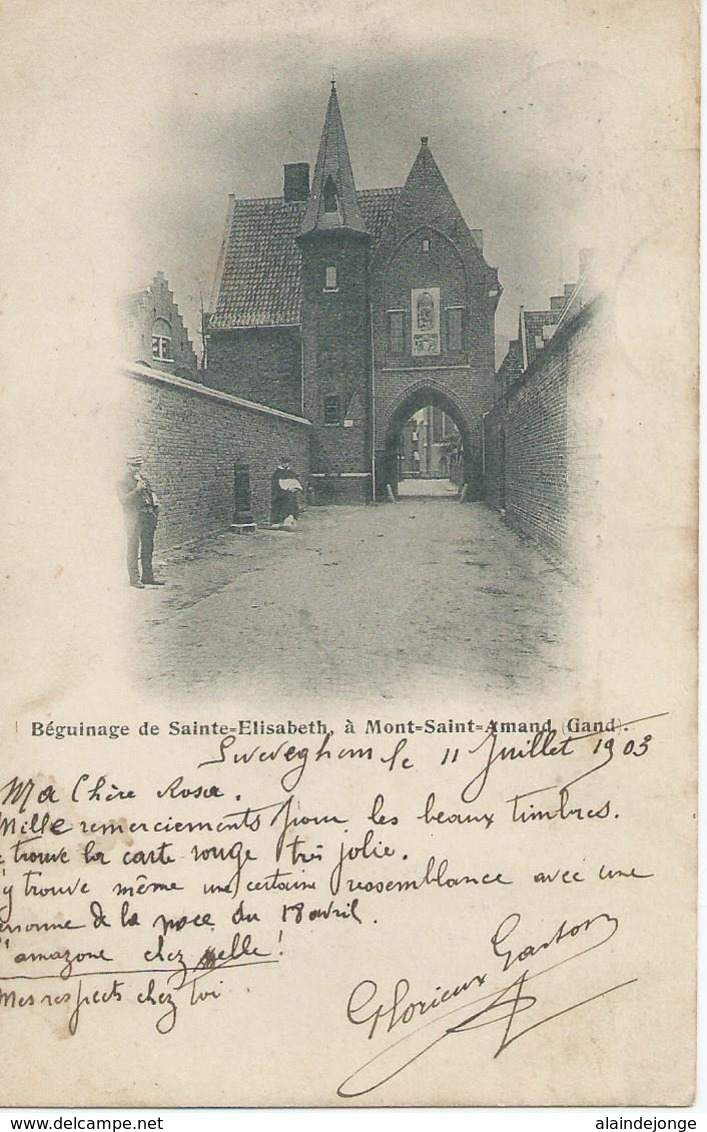 Béguinage de Sainte=Elisabeth, à Mont=Saint=Amand (Gand).
Sweveghem le 11 Juillet 1903
Ma Chère Rosa.
Mille remerciements pour les beaux timbres.
trouve la carte rouge très jolie.
y trouve même une certaine ressemblance avec une
personne de la noce du 18 avril.
l'amazone chez !
Mes respects chez toi.
Glorieux Gaston
alaindejonge